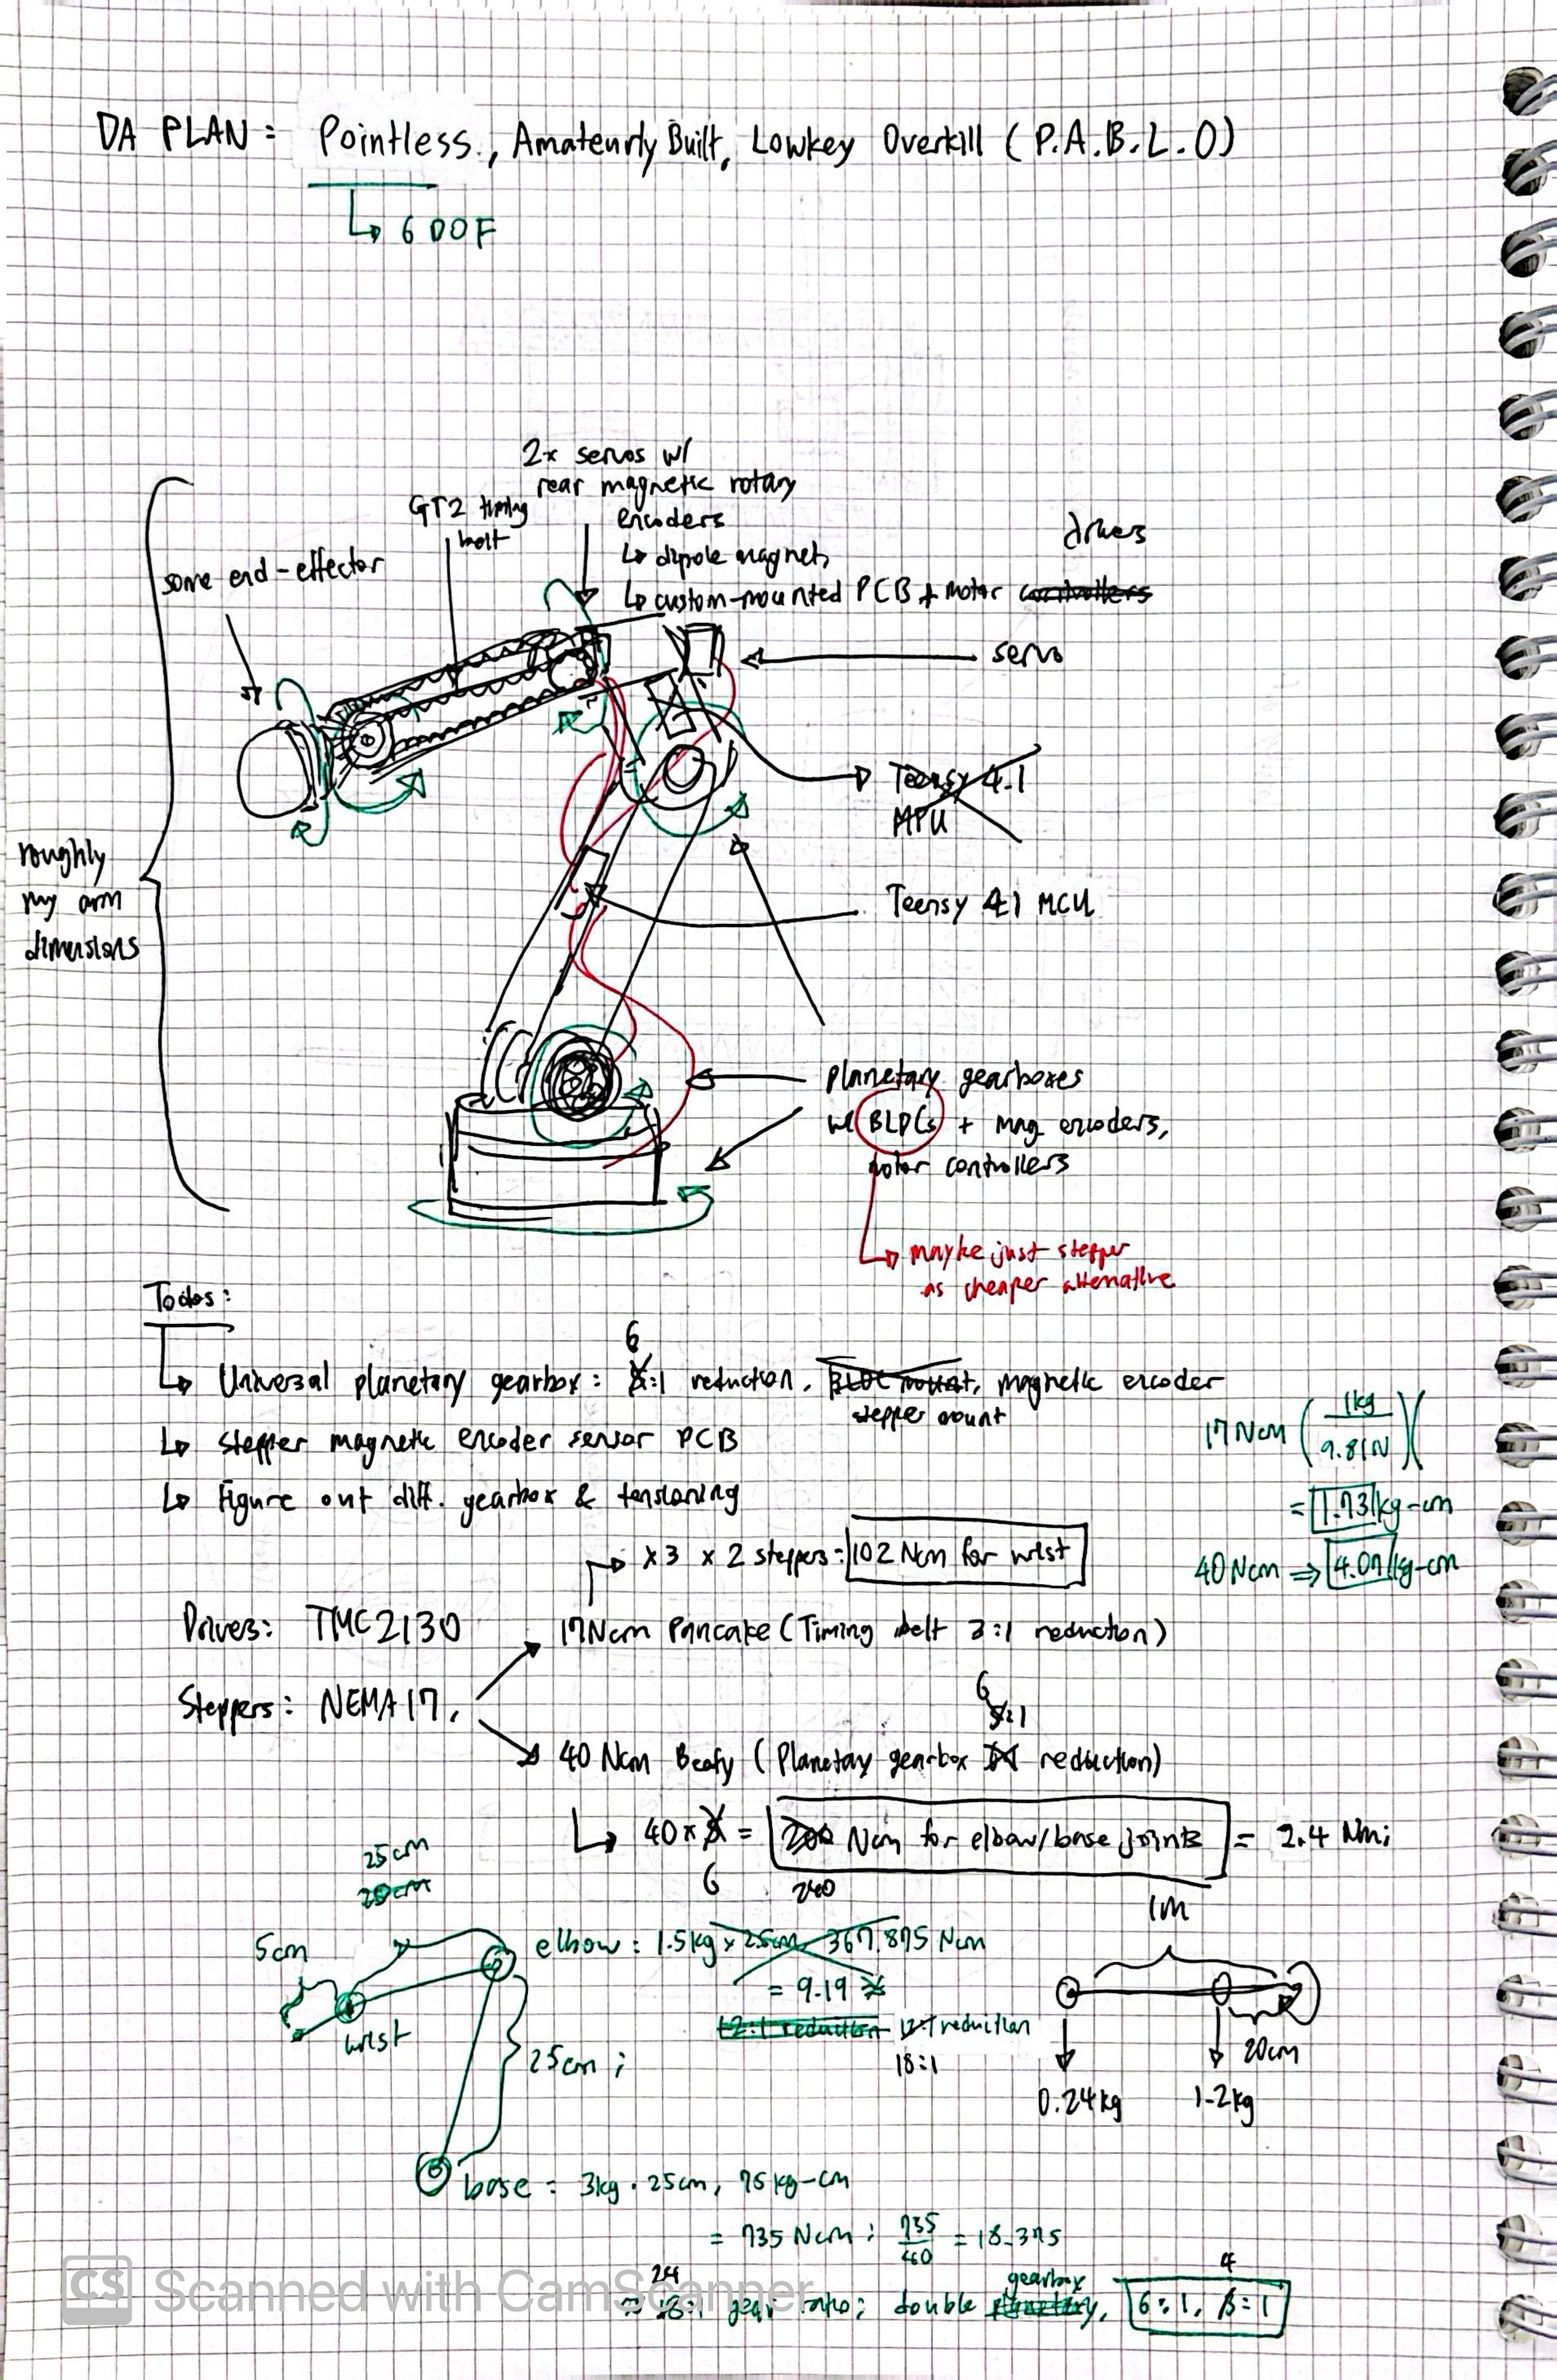 DA PLAN: Pointless, Amateurly Built, Lowkey Overkill (P.A.B.L.O)
↳ 6 DOF
2x servos w/
rear magnetic rotary
encoders
↳ dipole magnets
↳ custom-mounted PCB + motor controllers drivers
GT2 timing
belt
some end-effector
servo
Teensy 4.1
MPU
Teensy 4.1 MCU
roughly
my arm
dimensions
planetary gearboxes
w/ BLDCs + mag encoders,
motor controllers
↳ maybe just stepper
as cheaper alternative
Todos:
6
↳ Universal planetary gearbox: :1 reduction, BLDC mount, magnetic encoder
stepper mount
↳ stepper magnetic encoder sensor PCB
↳ Figure out diff. gearbox & tensioning
17 Ncm (1kg/9.81N)(
= 1.73 kg-cm
40 Ncm ⇒ 4.07 kg-cm
→ x3 x 2 steppers = 102 Ncm for wrist
Drivers: TMC2130
17Ncm Pancake (Timing belt 3:1 reduction)
Steppers: NEMA17,
6
:1
40 Ncm Beefy (Planetary gearbox reduction)
↳ 40 x = 200 Ncm for elbow/base joints = 2.4 Nm;
6 240
25cm
20cm
5cm
wrist
25cm;
elbow: 1.5kg x 25cm 367.875 Ncm
= 9.19
12:1 reduction 12:1 reduction
18:1
1M
20cm
0.24kg
1.2kg
base = 3kg · 25cm, 75kg-cm
= 735 Ncm; 735/40 = 18.375
24
≈ 18:1 gear ratio; double planetary, gearbox 6:1, 3:1
4
CS Scanned with CamScanner